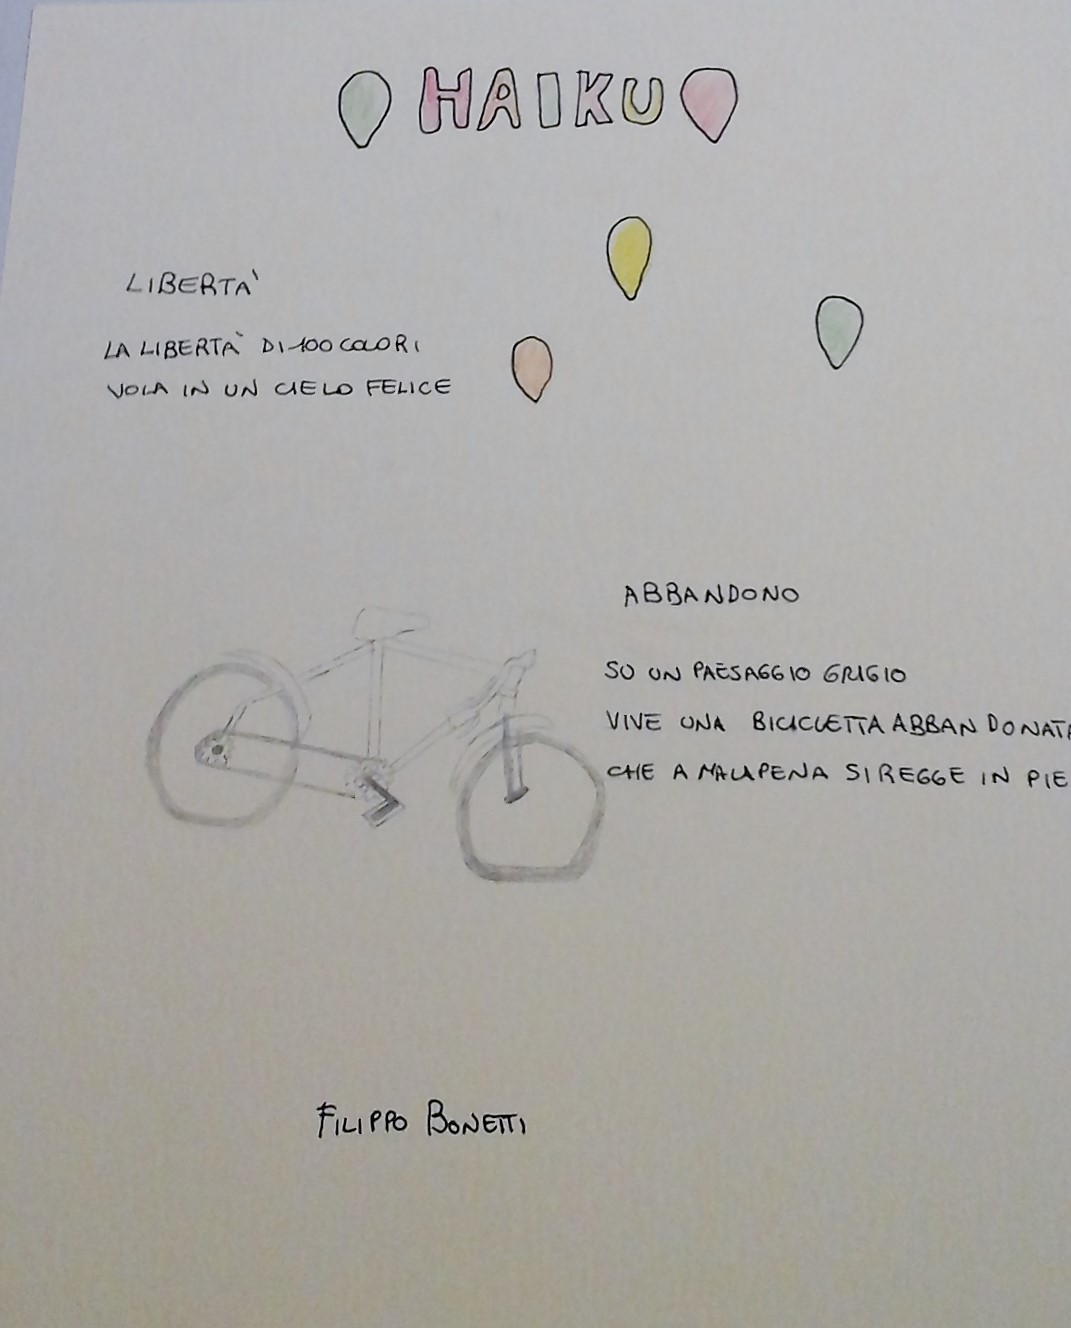 HAIKU
LIBERTA'
LA LIBERTÀ DI 100 COLORI
VOLA IN UN CIELO FELICE
ABBANDONO
SU UN PAESAGGIO GRIGIO
VIVE UNA BICICLETTA ABBANDONATA
CHE A MALAPENA SI REGGE IN PIE
FILIPPO BONETTI